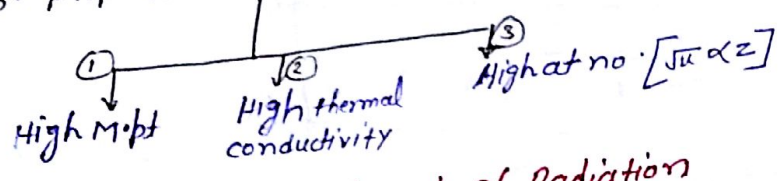 ①
High M.pt
②
High thermal
conductivity
③
High at no. [√ν ∝ z]
of Radiation